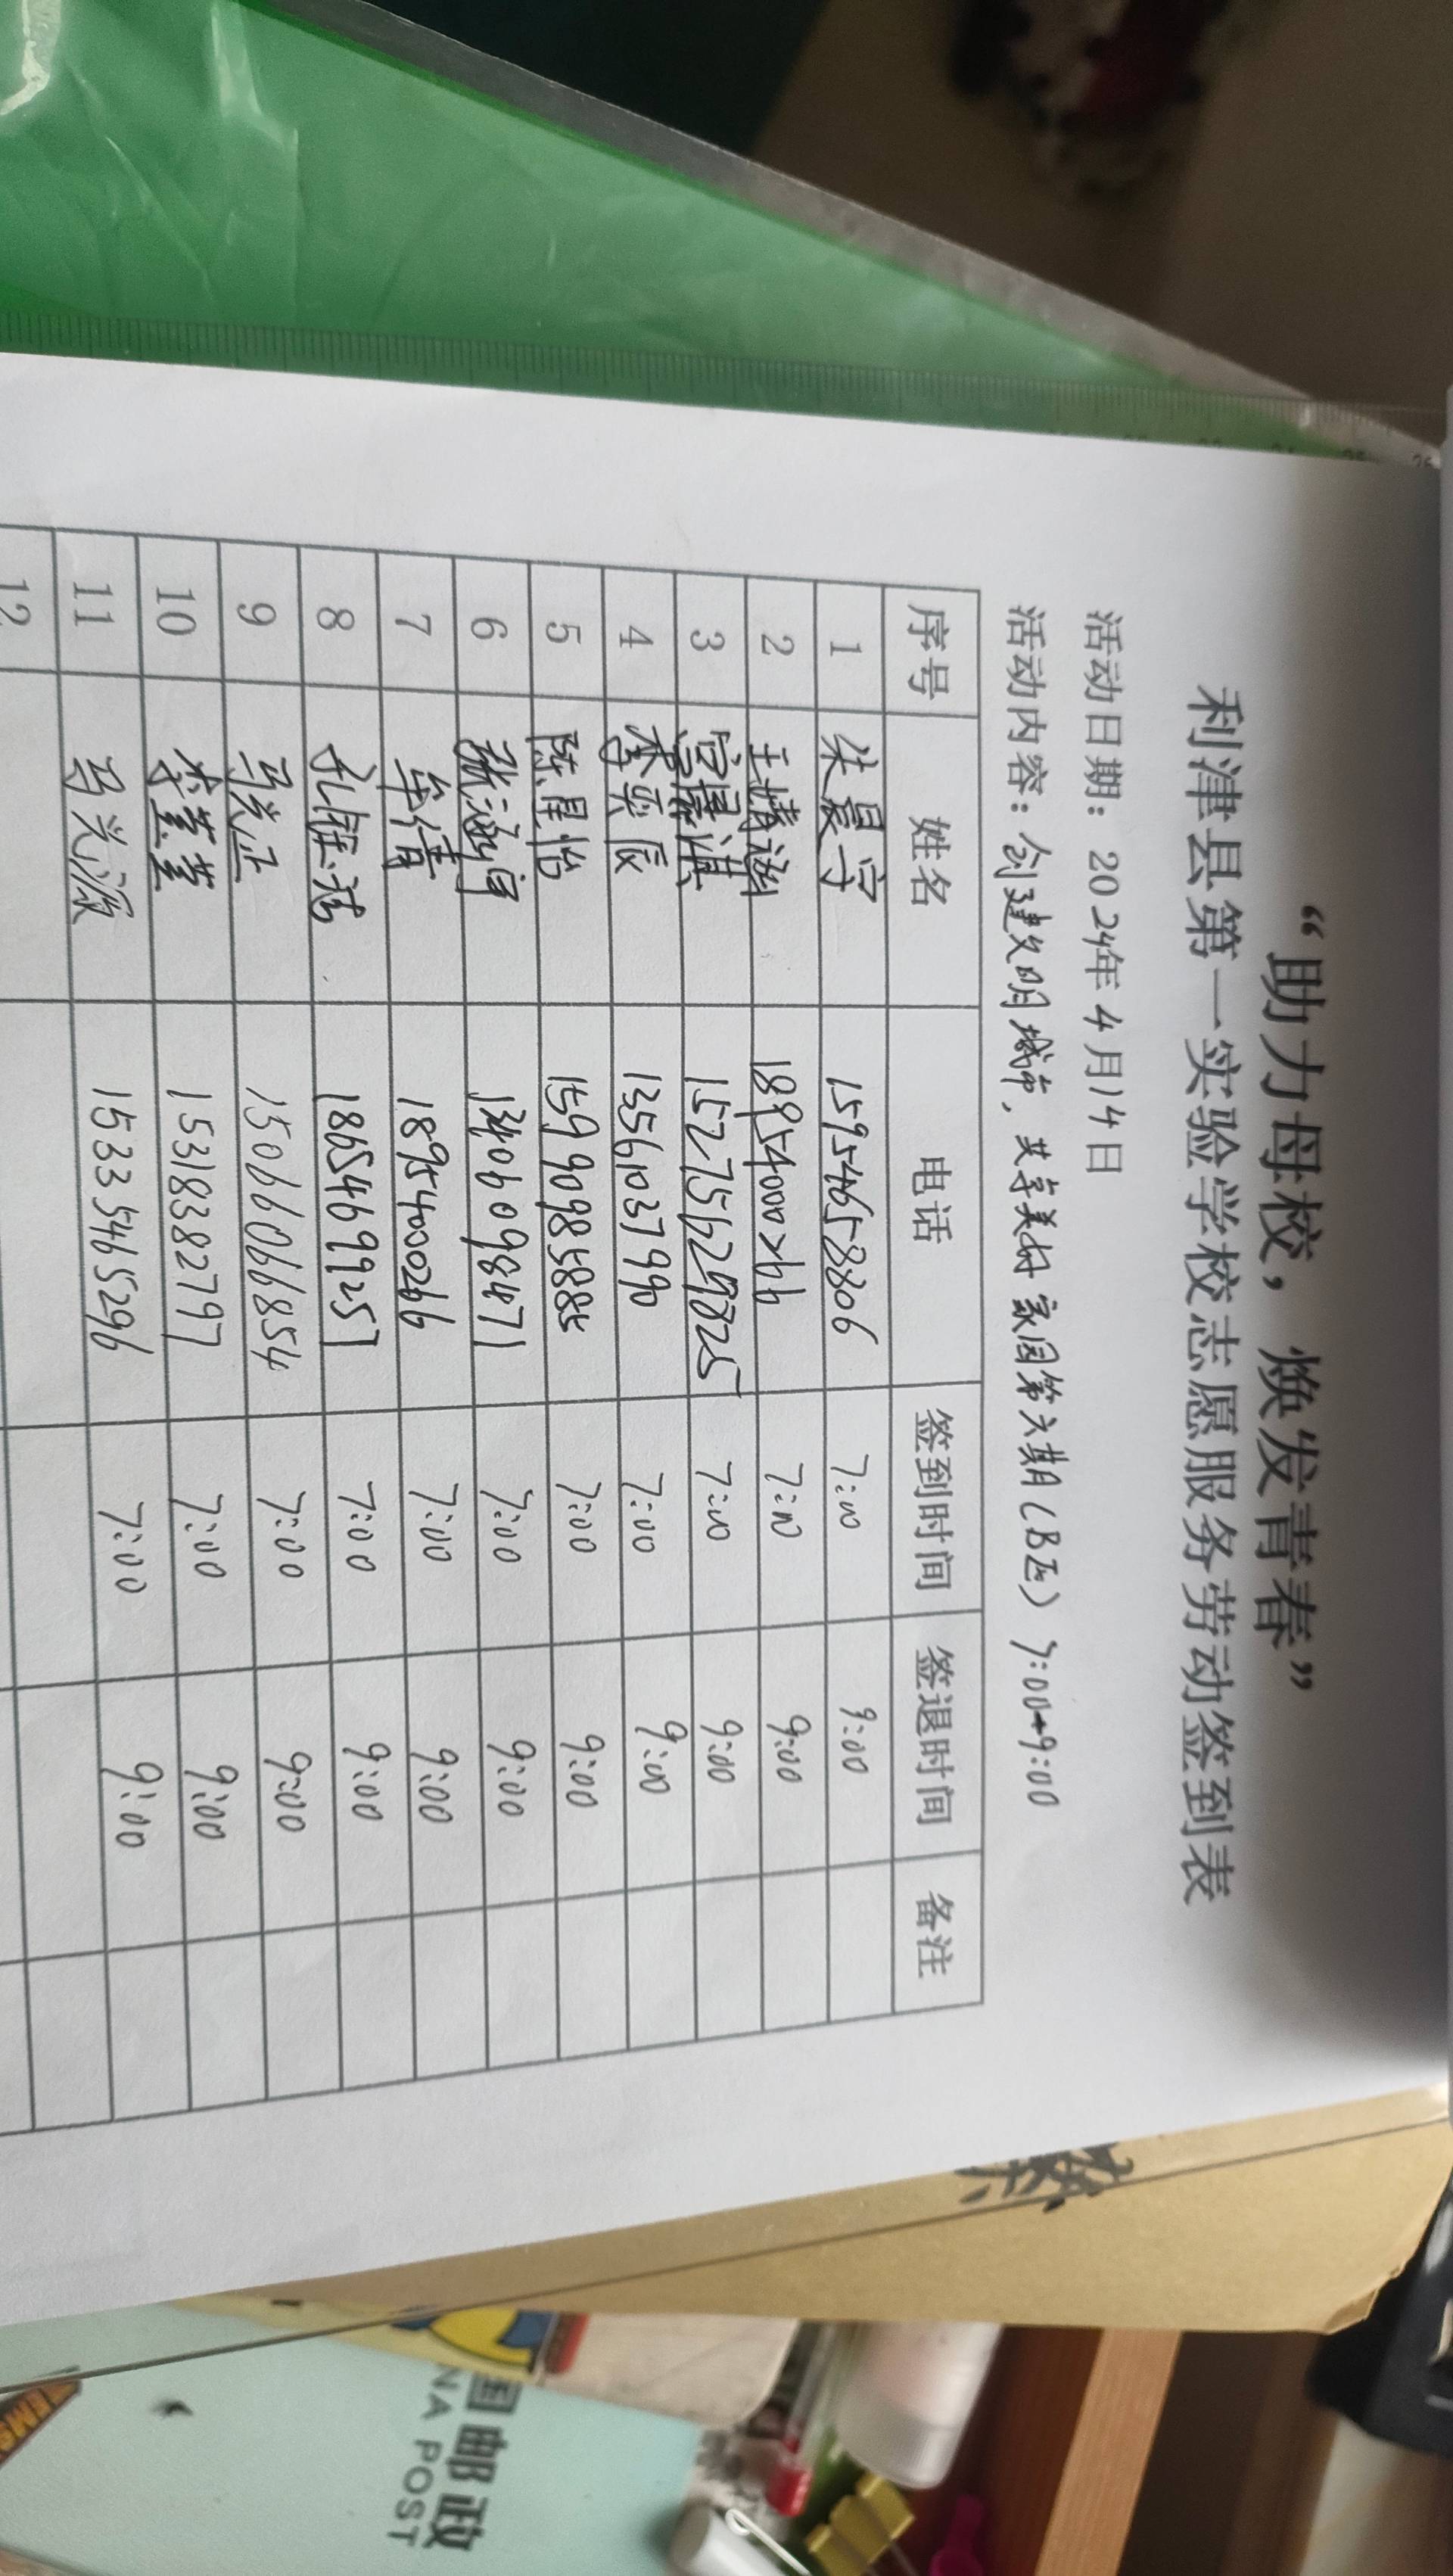 “助力母校，焕发青春”
利津县第一实验学校志愿服务劳动签到表
活动日期：2024年4月14日
活动内容：创建文明城市，共享美好家园第六期（B区）7:00→9:00
序号 姓名 电话 签到时间 签退时间 备注
1 朱晨宇 15954658806 7:00 9:00
2 王婧涵 18954000266 7:00 9:00
3 15275629825 7:00 9:00
4 李奕辰 13561037990 7:00 9:00
5 陈星怡 15990985885 7:00 9:00
6 张涵宁 7:00 9:00
7 牟倩 18954000266 7:00 9:00
8 孔钰 18654699251 7:00 9:00
9 马兴正 15066066854 7:00 9:00
10 李萱萱 15318382797 7:00 9:00
11 马兴源 153335465296 7:00 9:00
12
国邮政
NA POST
EMS